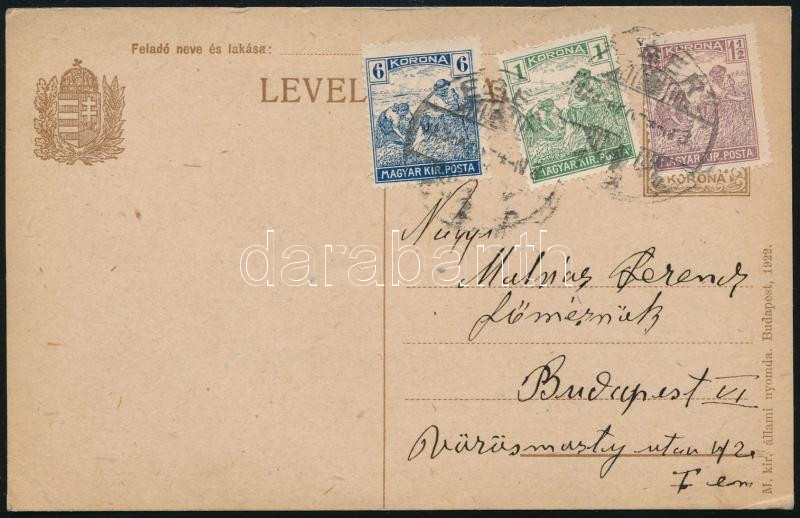 Feladó neve és lakása:
LEVEL
6 KORONA 6
MAGYAR KIR. POSTA
1 KORONA 1
MAGYAR KIR. POSTA
KORONA 1 1/2
MAGYAR KIR. POSTA
KORONA
Nagys
Malnás Ferencz
főmérnök
Budapest VI
Vörösmarty utca 42.
I em
M. kir. állami nyomda. Budapest, 1922.
darabanth